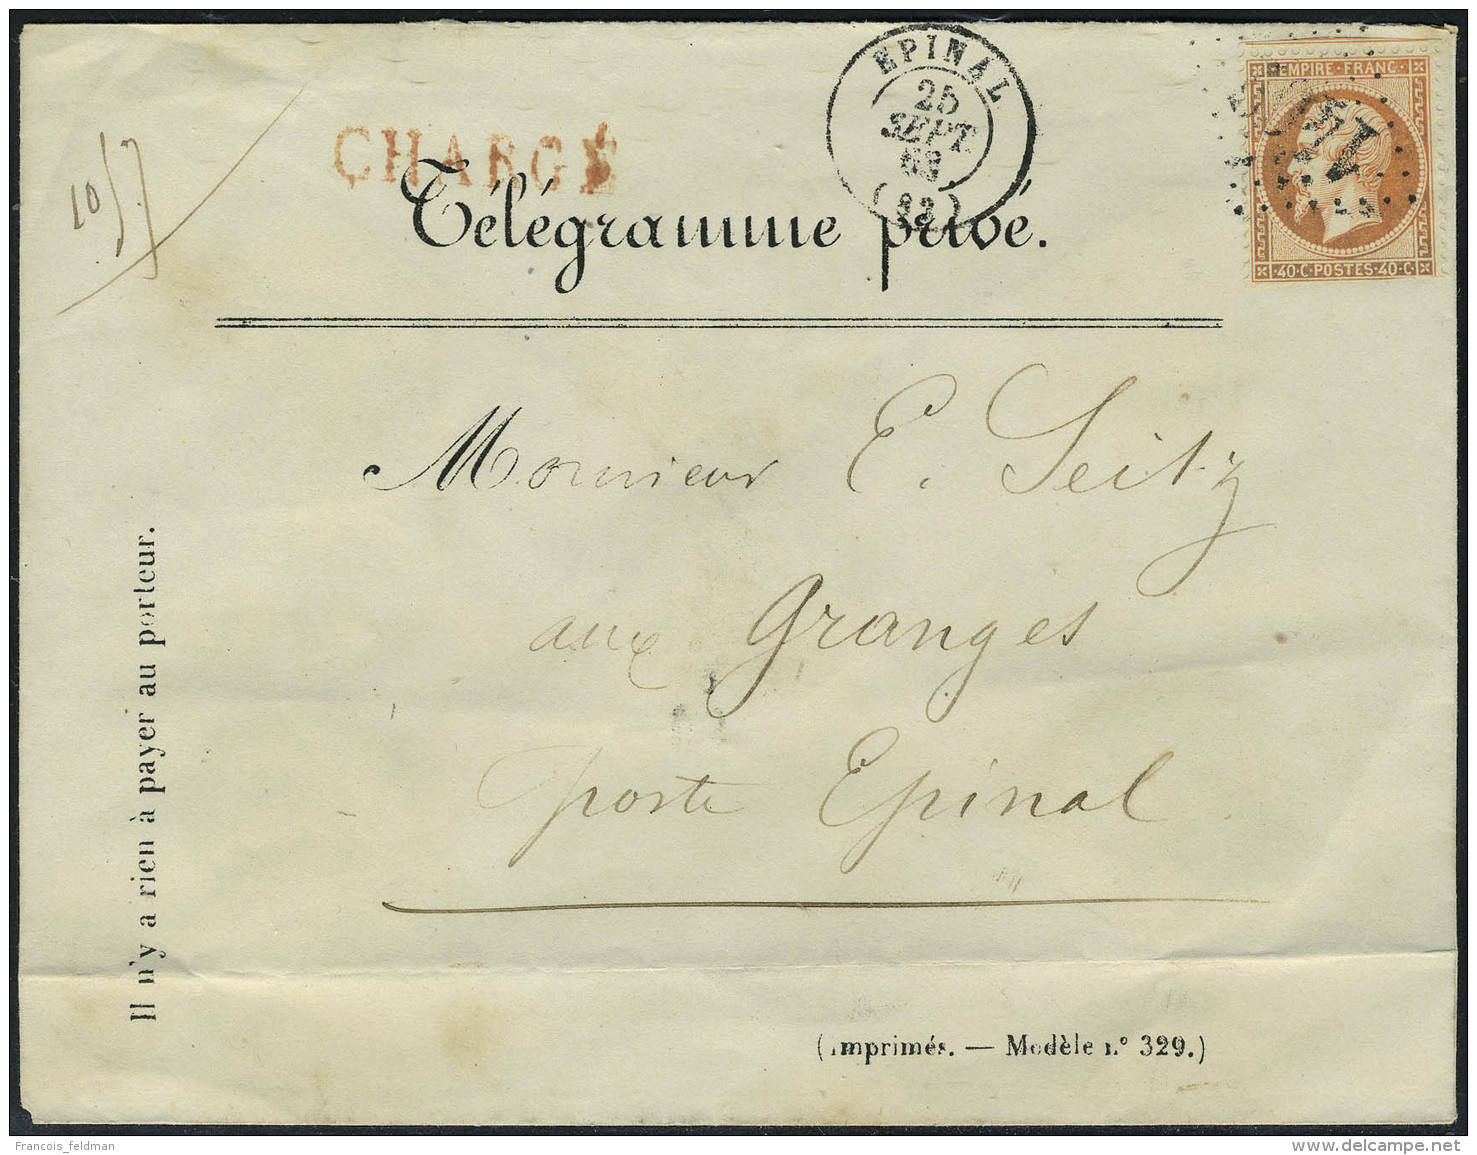 EPINAL
25
SEPT.
(82)
CHARGÉ
Télégramme privé.
EMPIRE·FRANC·
40·C·POSTES·40·C
10/7
Monsieur E. Seitz
aux Granges
poste Epinal
Il n'y a rien à payer au porteur.
(Imprimés. — Modèle n° 329.)
Francois_feldman
delcampe.net